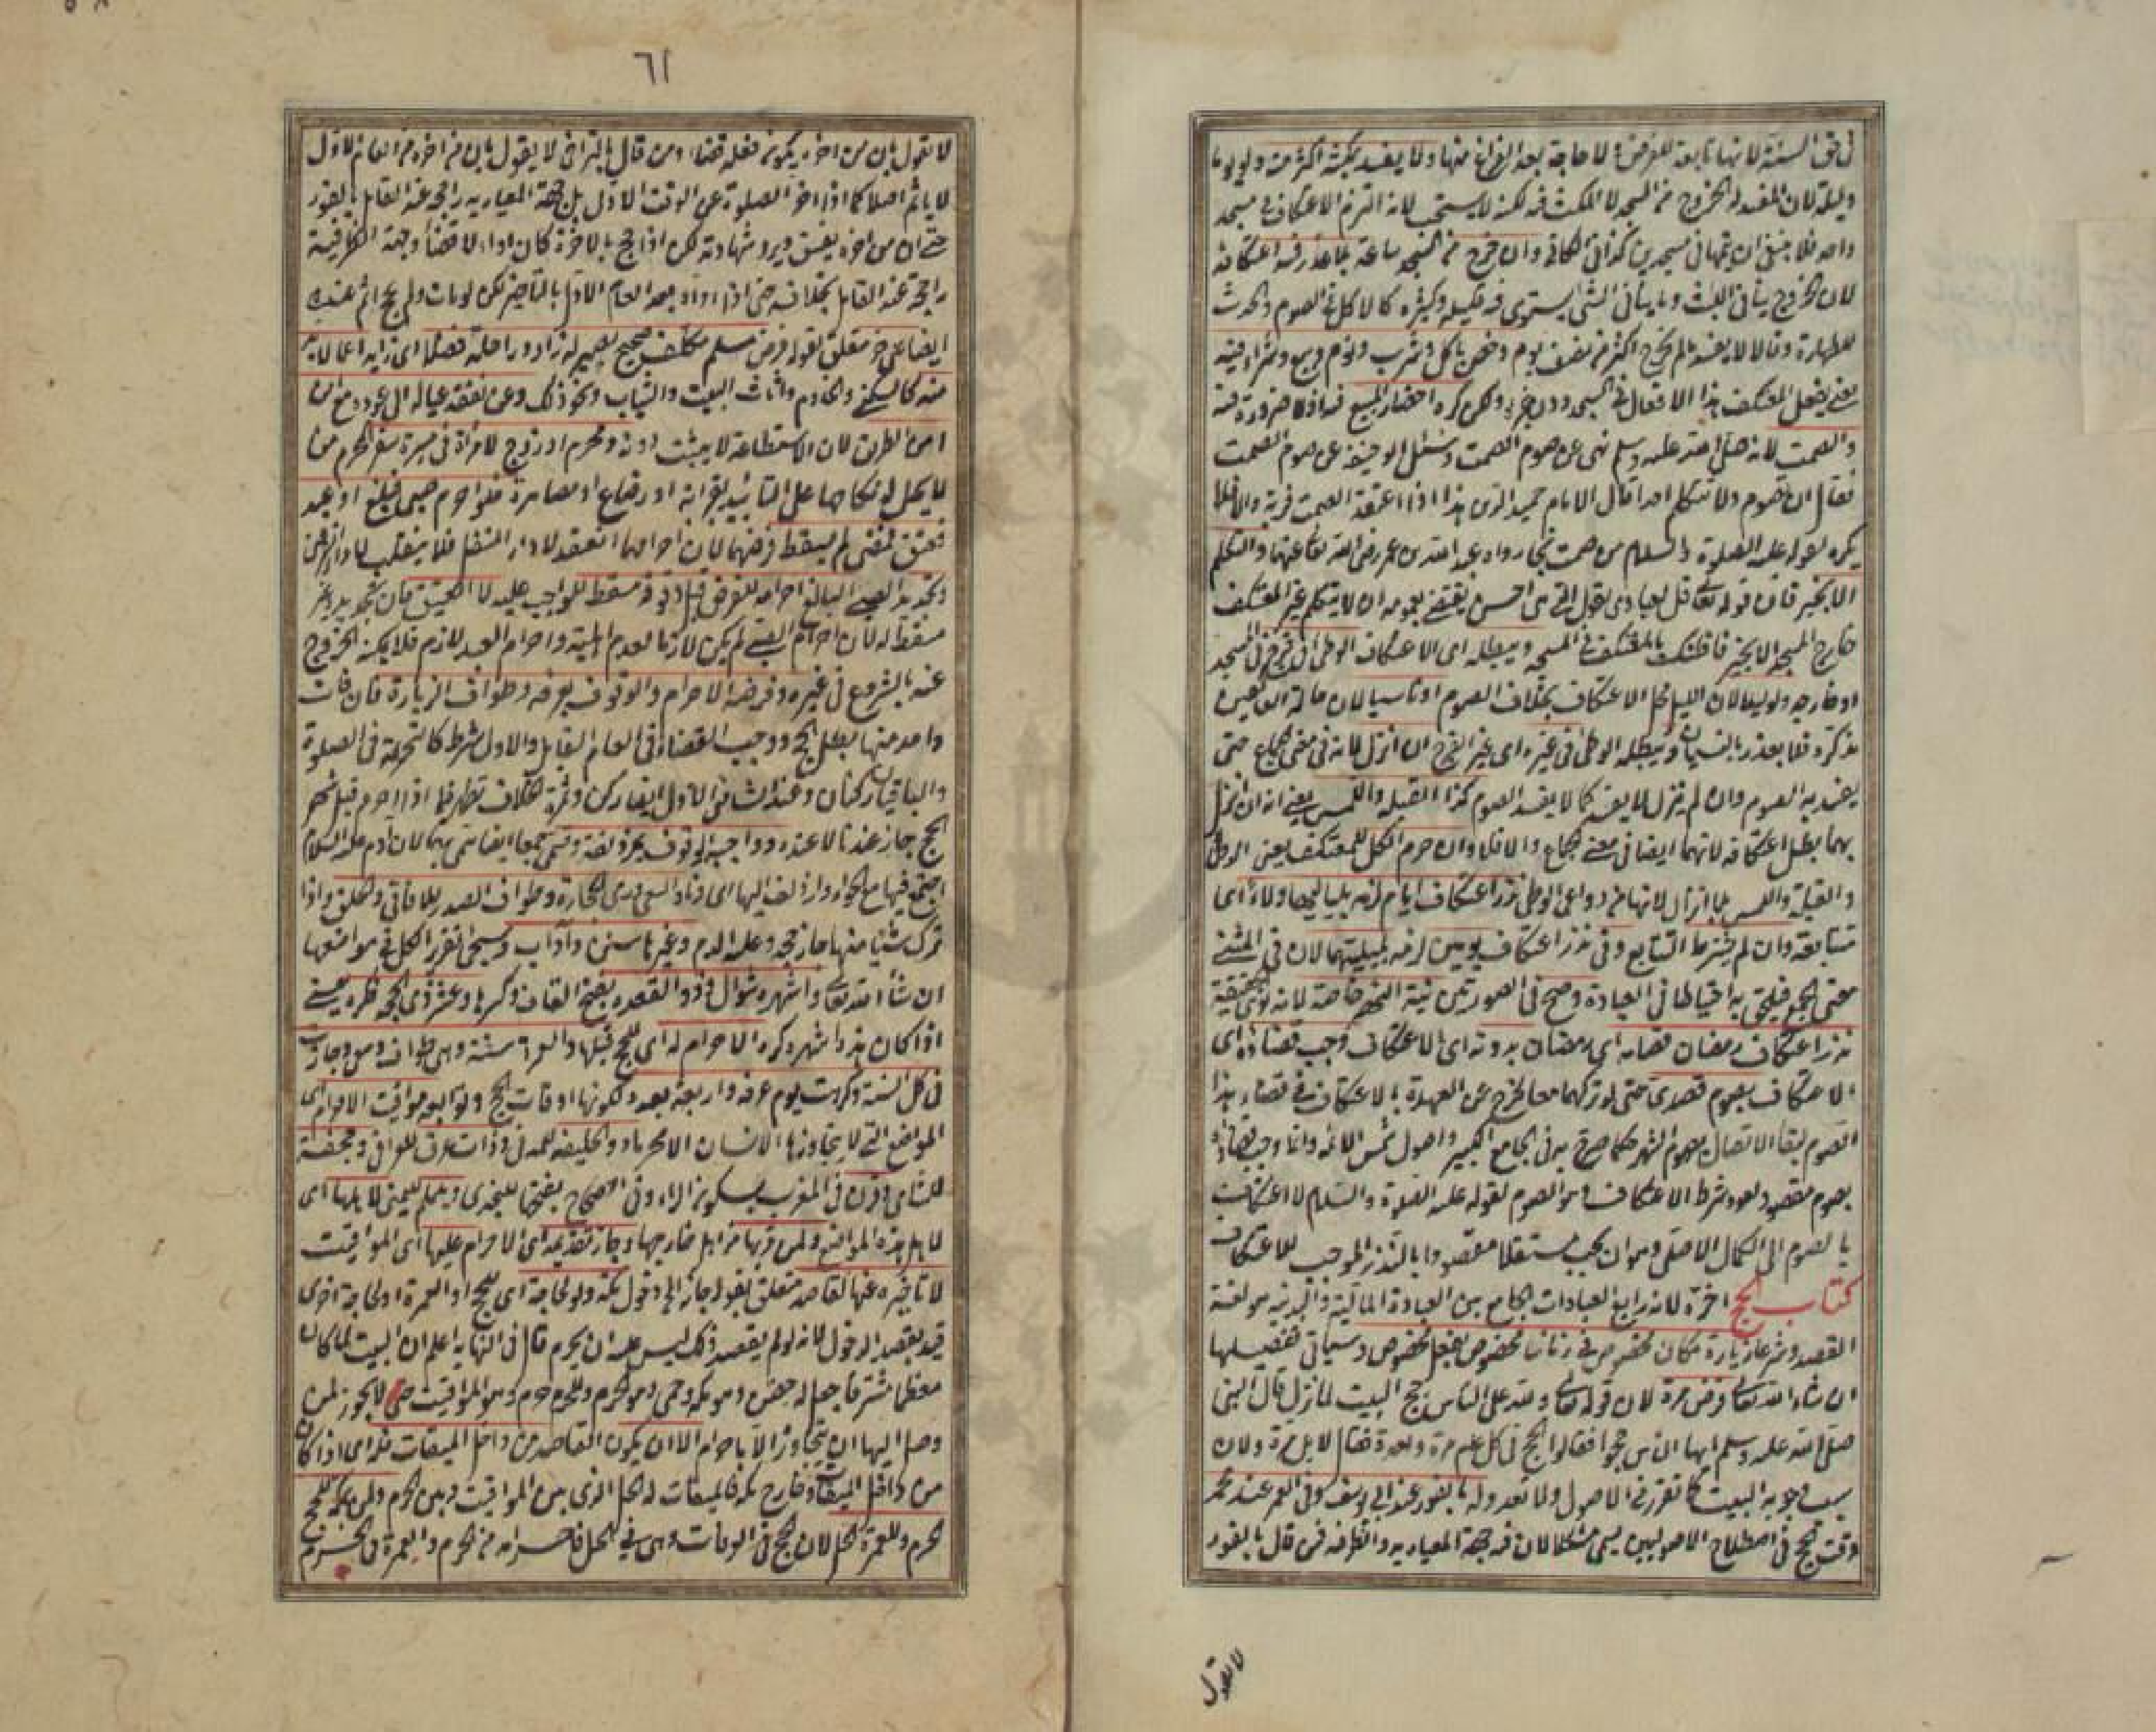 في حق السنة لانها تابعة للفرض ولا حاجة بعد الفراغ منها ولا يفسد بمكثه اكثر منه ولو يوما
وليلة لان المفسد له الخروج من المسجد لا المكث فيه لكنه لا يستحب لانه التزم الاعتكاف في مسجد
واحد فلا ينبغي ان يتمها في مسجدين كذا في الكافي وان خرج من المسجد ساعة بلا عذر فسد اعتكافه
لان الخروج ينافي اللبث وما ينافي الشئ يستوي فيه قليله وكثيره كالاكل في الصوم والحدث
للطهارة وقالا لا يفسد ما لم يخرج اكثر من نصف يوم وخص باكل وشرب ونوم وبيع وشراء فيه
يعني يفعل المعتكف هذه الافعال في المسجد دون غيره ولكن كره احضار المبيع فيه اذ لا ضرورة فيه
والصمت لانه صلى الله عليه وسلم نهى عن صوم الصمت وسئل ابو حنيفة عن صوم الصمت
فقال ان تصوم ولا تتكلم احدا قال الامام حميد الدين هذا اذا اعتقد الصمت قربة والا فلا
يكره لقوله عليه الصلوة والسلام من صمت نجا رواه عبد الله بن عمر رضى الله تعالى عنهما والتكلم
الا بخير فان قوله تعالى قل لعبادي يقولوا التي هي احسن يقتضي بعمومه ان لا يتكلم غير المعتكف
خارج المسجد الا بخير فما ظنك بالمعتكف في المسجد ويبطله اى الاعتكاف الوطئ في فرج في المسجد
او خارجه ولو ليلا لان الليل محل الاعتكاف بخلاف الصوم او ناسيا لان حالة العاكفين
مذكرة فلا يعذر بالنسيان ويبطله الوطئ في غيره اى غير الفرج ان انزل لانه في معنى الجماع حتى
يفسد به الصوم وان لم ينزل لا يفسد كما لا يفسد الصوم كذا القبلة واللمس يعني انه ان انزل
بهما بطل اعتكافه لانهما ايضا في معنى الجماع والا فلا وان حرم الكل للمعتكف يعني الوطئ
والقبلة واللمس بلا انزال لانها من دواعي الوطئ نذر اعتكاف ايام لزمه بلياليها ولاء اى
متتابعة وان لم يشترط التتابع وفي نذر اعتكاف يومين لزمه بليلتيهما لان في المثنى
معنى الجمع فيلحق به احتياطا في العبادة وصح في الصورتين نية النهر خاصة لانه نوى الحقيقة
نذر اعتكاف رمضان فصامه اى رمضان بدونه اى الاعتكاف وجب قضاؤه اى
الاعتكاف بصوم قصدي حتى لو تركهما معا يخرج عن العهدة بالاعتكاف في قضاء هذا
الصوم لبقاء الاتصال بصوم الشهر حكما صرح به في الجامع الكبير واصول شمس الائمة وانما وجب قضاؤه
بصوم مقصود لعود شرط الاعتكاف وهو الصوم لقوله عليه الصلوة والسلام لا اعتكاف
الا بالصوم الى الكمال الاصلي وهو ان يجب مستقلا مقصودا بالنذر الموجب للاعتكاف
كتاب الحج اخره لانه رابع العبادات الجامع بين العبادة المالية والبدنية هو لغة
القصد وشرعا زيارة مكان مخصوص في زمان مخصوص بفعل مخصوص وسياتي تفصيلها
ان شاء الله تعالى فرض مرة لان قوله تعالى ولله على الناس حج البيت لما نزل قال النبي
صلى الله عليه وسلم ايها الناس حجوا فقالوا الحج في كل عام مرة واحدة فقال لا بل مرة ولان
سبب وجوبه البيت كما تقرر في الاصول ولا تعدد له بالفور عند ابي يوسف وفي العمر عند محمد
وقت الحج في اصطلاح الاصوليين يسمى مشكلا لان فيه جهة المعيارية والظرفية فمن قال بالفور
لا يقول
٦١
لا يقول بان من اخره يكون فعله قضاء ومن قال بالتراخي لا يقول بان من اخره من العام الاول
لا ياثم اصلا كما اذا اخر الصلوة عن الوقت الاول بل جهة المعيارية راجحة عند القائل بالفور
حتى ان من اخره يفسق ويرد شهادته لكن اذا حج بالاخرة كان اداء لا قضاء وجهة الظرفية
راجحة عند القائل بخلافه حتى اذا اداه بعد العام الاول لا ياثم بالتاخير لكن لو مات ولم يحج اثم عنده
ايضا على حر متعلق بقوله فرض مسلم مكلف صحيح بصير له زاد وراحلة فضلا اى زايدا عما لا بد
منه كالسكنى والخادم واثاث البيت والثياب ونحو ذلك وعن نفقة عياله الى عوده مع
امن الطريق لان الاستطاعة لا يثبت دونه ومحرم او زوج لامرأة في مسيرة سفر المحرم من
لا يحل له نكاحها على التابيد بقرابة او رضاع او مصاهرة فلو احرم صبي فبلغ او عبد
فعتق فمضى لم يسقط فرضهما لان احرامهما انعقد لاداء النفل فلا ينقلب لاداء الفرض
وتجديد الصبي البالغ احرامه للفرض قبل وقوفه مسقط للواجب عليه لا العتيق فان تجديده غير
مسقط له لان احرام الصبي لم يكن لازما لعدم الاهلية واحرام العبد لازم فلا يمكنه الخروج
عنه بالشروع في غيره وفرضه الاحرام والوقوف بعرفة وطواف الزيارة فان فات
واحد منها بطل الحج ووجب القضاء في العام القابل والاول شرط كالتحريمة في الصلوة
والباقيان ركنان وعند الشافعي الاول ايضا ركن وثمرة الخلاف تظهر فيما اذا احرم قبل اشهر
الحج جاز عندنا لا عنده وواجبه الوقوف بمزدلفة وتسمى جمعا ايضا سمي بهما لان آدم عليه السلام
اجتمع فيها مع حواء وازدلف اليها اى دنا والسعي ورمي الجمار وطواف الصدر للافاقي والحلق واذا
ترك شيئا منها جاز حجه وعليه الدم وغيرها سنن وآداب وسيجئ تقرير الكل في مواضعها
ان شاء الله تعالى واشهره شوال وذو القعدة بفتح القاف وكسرها وعشر ذي الحجة فكره يعني
اذا كان هذه اشهره كره الاحرام له اى للحج قبلها والعمرة سنة وهي طواف وسعي وجازت
في كل السنة وكرهت يوم عرفة واربعة بعده لكونها اوقات الحج وتوابعه مواقيت الاحرام اى
المواضع التي لا يتجاوزها الانسان الا محرما ذو الحليفة للمدني وذات عرق للعراقي وجحفة
للشامي وقرن في المغرب بسكون الراء وفي الصحاح بفتحها للنجدي ويلملم لليمني لاهلها اى
لاهل هذه المواضع ولمن مر بها من اهل خارجها وجاز تقديمه اى الاحرام عليها اى المواقيت
لا تاخيره عنها لقاصد متعلق بقوله جاز الى دخول مكة ولو لحاجة اى للحج او العمرة او لحاجة اخرى
قيد بقصد الدخول لانه لو لم يقصد ذلك ليس عليه ان يحرم قال في النهاية اعلم ان البيت لما كان
معظما مشرفا جعل له حصن وهو مكة وحمى وهو الحرم وللحرم حرم وهو المواقيت حتى لا يجوز لمن
وصل اليها ان يتجاوز الا باحرام الا ان يكون القاصد من داخل الميقات فله اى اذا كان
من داخل الميقات وخارج مكة فالميقات له الحل الذي بين المواقيت وبين الحرم ولمن بمكة للحج
الحرم وللعمرة الحل لان الحج في عرفات وهي في الحل فاحرامه من الحرم والعمرة في الحرم